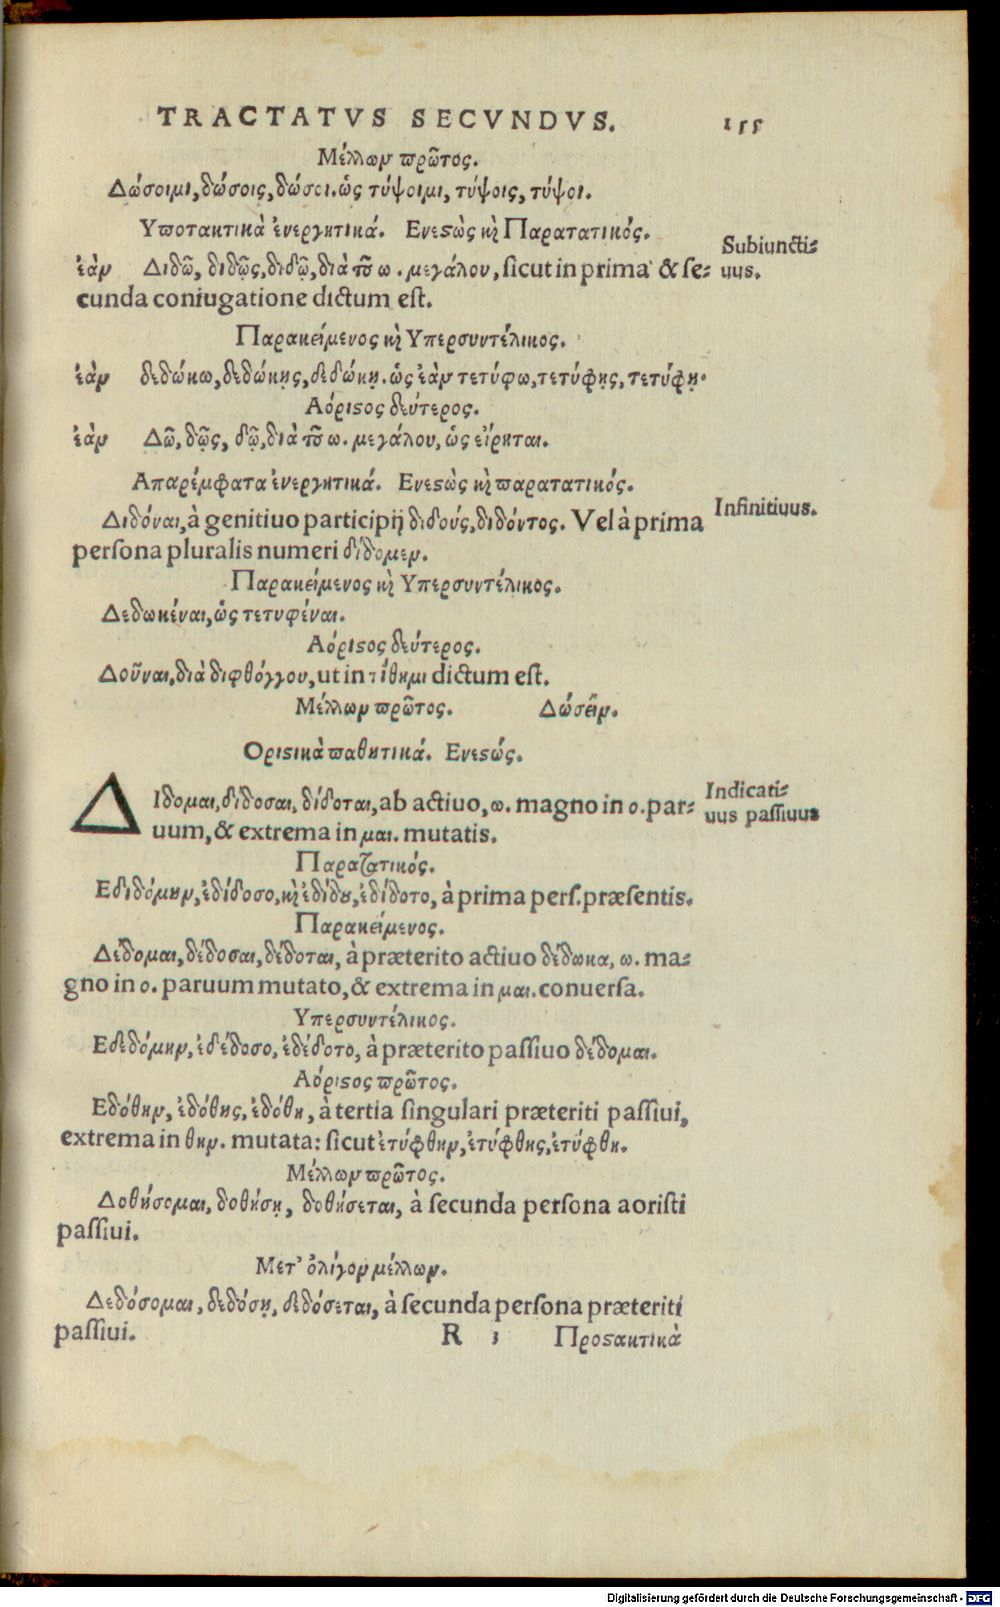 TRACTATVS SECVNDVS. 155
Μέλλων πρῶτος.
Δώσοιμι, δώσοις, δώσοι. ὡς τύψοιμι, τύψοις, τύψοι.
Υποτακτικὰ ἐνεργητικά. Ενεστὼς καὶ Παρατατικός.
Subiuncti-
uus.
ἐὰν Διδῶ, διδῷς, διδῷ, διὰ τοῦ ω. μεγάλου, sicut in prima & se-
cunda coniugatione dictum est.
Παρακείμενος καὶ Υπερσυντέλικος.
ἐὰν δεδώκω, δεδώκῃς, δεδώκῃ. ὡς ἐὰν τετύφω, τετύφῃς, τετύφῃ.
Αόριστος δεύτερος.
ἐὰν Δῶ, δῷς, δῷ, διὰ τοῦ ω. μεγάλου, ὡς εἴρηται.
Απαρέμφατα ἐνεργητικά. Ενεστὼς καὶ παρατατικός.
Infinitiuus.
Διδόναι, à genitiuo participij διδούς, διδόντος. Vel à prima
persona pluralis numeri δίδομεν.
Παρακείμενος καὶ Υπερσυντέλικος.
Δεδωκέναι, ὡς τετυφέναι.
Αόριστος δεύτερος.
Δοῦναι, διὰ διφθόγγου, ut in τίθημι dictum est.
Μέλλων πρῶτος. Δώσειν.
Οριστικὰ παθητικά. Ενεστώς.
Indicati-
uus passiuus
ΔΙδομαι, δίδοσαι, δίδοται, ab actiuo, ω. magno in ο. par-
uum, & extrema in μαι. mutatis.
Παρατατικός.
Εδιδόμην, ἐδίδοσο, καὶ ἐδίδου, ἐδίδοτο, à prima pers. præsentis.
Παρακείμενος.
Δέδομαι, δέδοσαι, δέδοται, à præterito actiuo δέδωκα, ω. ma-
gno in ο. paruum mutato, & extrema in μαι. conuersa.
Υπερσυντέλικος.
Εδεδόμην, ἐδέδοσο, ἐδέδοτο, à præterito passiuo δέδομαι.
Αόριστος πρῶτος.
Εδόθην, ἐδόθης, ἐδόθη, à tertia singulari præteriti passiui,
extrema in θην. mutata: sicut ἐτύφθην, ἐτύφθης, ἐτύφθη.
Μέλλων πρῶτος.
Δοθήσομαι, δοθήσῃ, δοθήσεται, à secunda persona aoristi
passiui.
Μετ' ὀλίγον μέλλων.
Δεδόσομαι, δεδόσῃ, δεδόσεται, à secunda persona præteriti
passiui. R 3 Προστακτικὰ
Digitalisierung gefördert durch die Deutsche Forschungsgemeinschaft - DFG